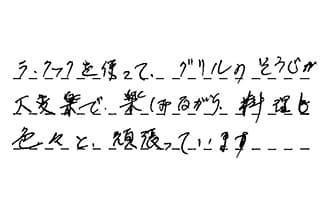 ラ、クックを使って、グリルのそうじが
大変楽で、楽しみながら、料理も
色々と、頑張っています